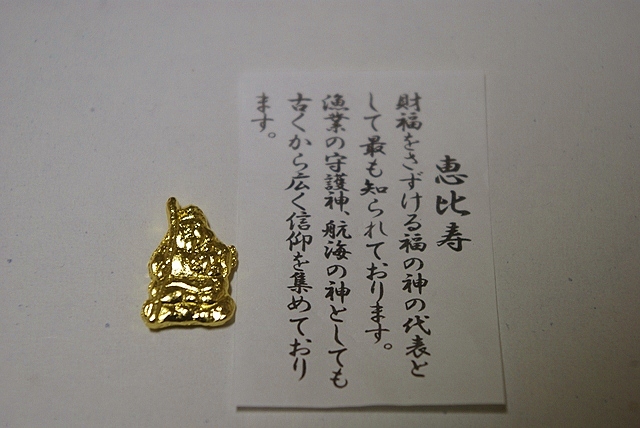 恵比寿
財福をさずける福の神の代表と
して最も知られております。
漁業の守護神、航海の神としても
古くから広く信仰を集めており
ます。